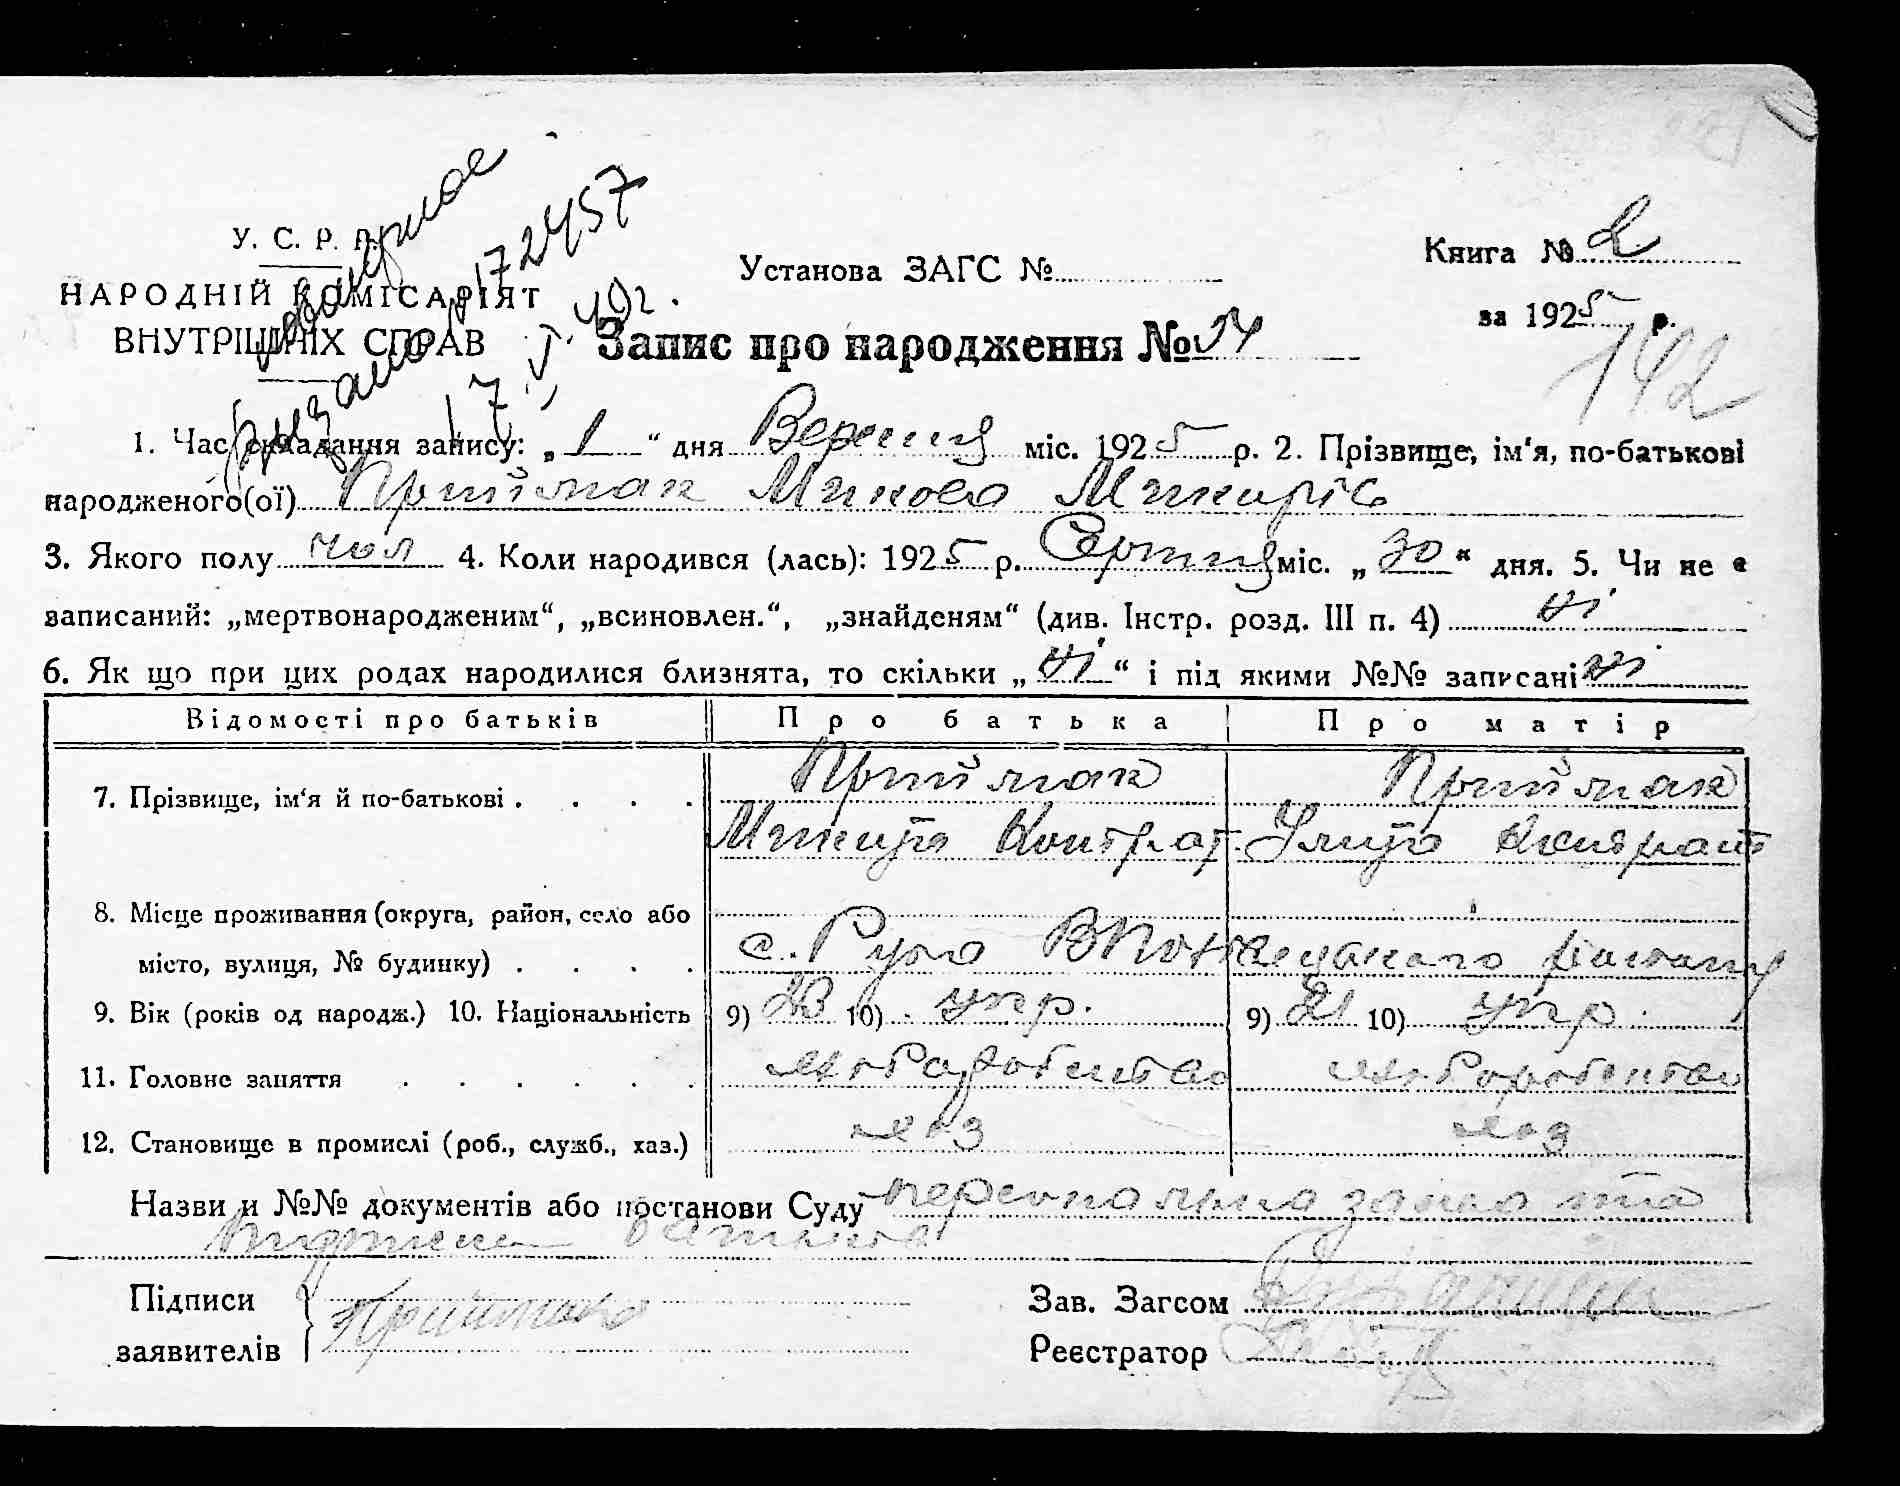 У. С. Р. Р.
НАРОДНІЙ КОМІСАРІЯТ
ВНУТРІШНІХ СПРАВ
172457
17. V. 49г.
Установа ЗАГС №
Книга № 2
за 1925 р.
142
Запис про народження № 54
1. Час складання запису: „1“ дня Вересня міс. 1925 р. 2. Прізвище, ім‘я, по-батькові
народженого(ої) Приймак Микола Микит
3. Якого полу чол 4. Коли народився (лась): 1925 р. Серпня міс. „30“ дня. 5. Чи не є
записаний: „мертвонародженим“, „всиновлен.“, „знайденям“ (див. Інстр. розд. III п. 4) ні
6. Як що при цих родах народилися близнята, то скільки „ні“ і під якими №№ записані ні
Відомості про батьків Про батька Про матір
7. Прізвище, ім‘я й по-батькові . . . . Приймак Приймак
Микита Контрат. Улита
8. Місце проживання (округа, район, село або
місто, вулиця, № будинку) . . . . с. Руда району
9. Вік (років од народж.) 10. Національність 9) 23 10) укр. 9) 21 10) укр.
11. Головне заняття . . . . . . хліборобство хліборобство
12. Становище в промислі (роб., служб., хаз.) хаз хаз
Назви и №№ документів або постанови Суду персональна заява та
батька
Підписи
заявителів
Приймак
Зав. Загсом
Реєстратор